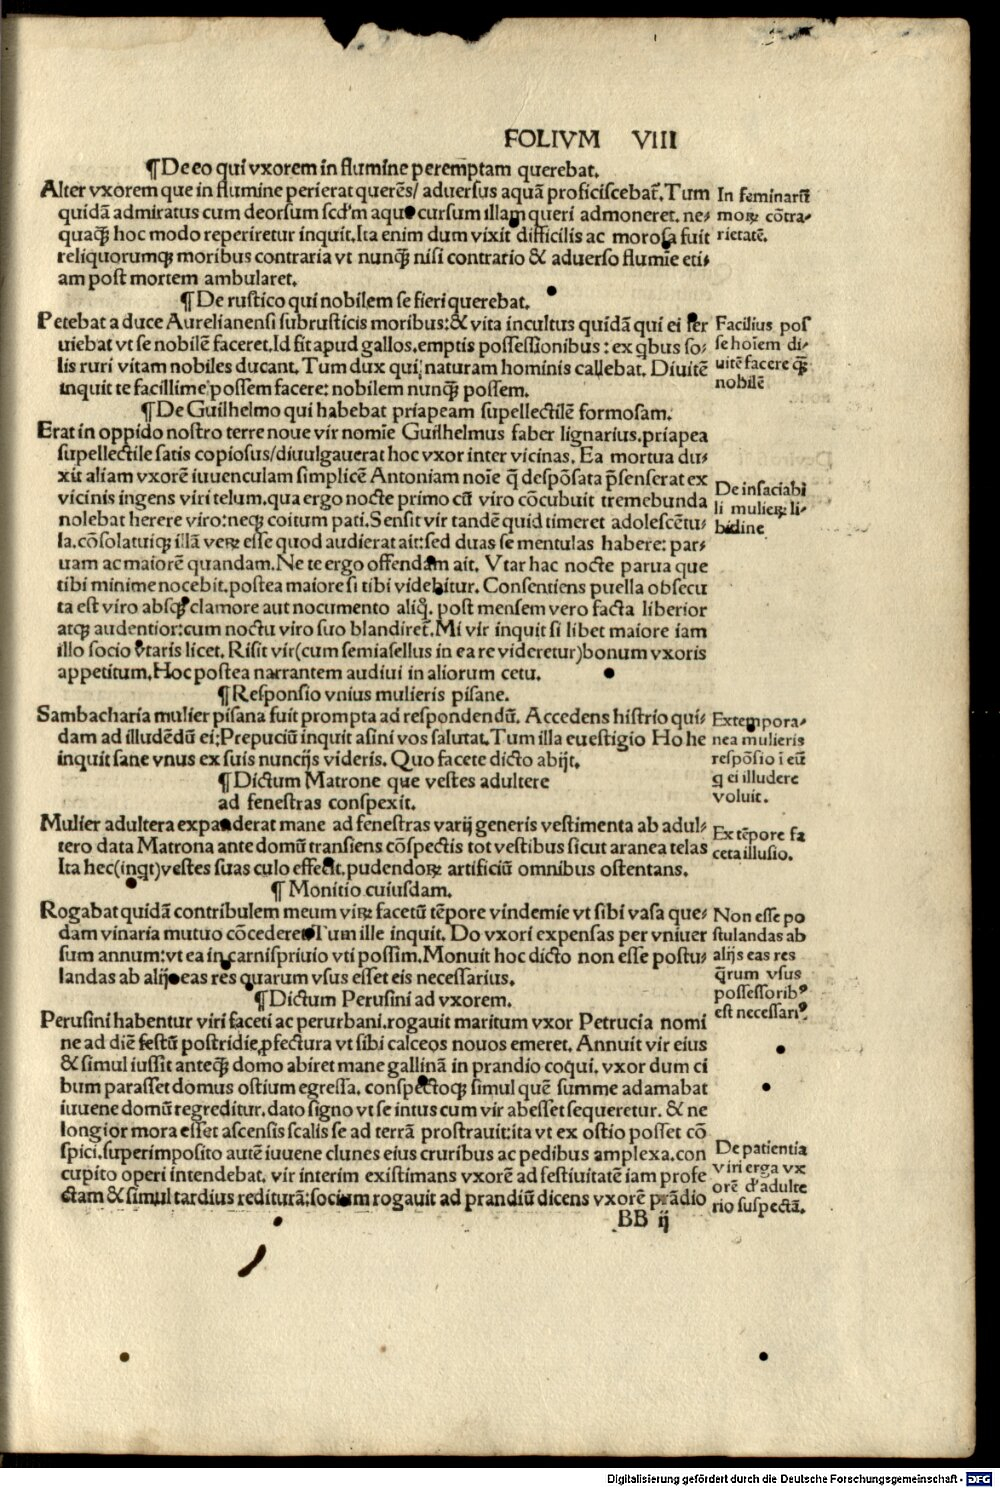 FOLIVM VIII
¶ De eo qui vxorem in flumine peremptam querebat.
Alter vxorem que in flumine perierat querēs/ aduersus aquā proficiscebat̄. Tum
quidā admiratus cum deorsum scd'm aque cursum illam queri admoneret. ne⸗
quaq̄ hoc modo reperiretur inquit. Ita enim dum vixit difficilis ac morosa fuit
reliquorumqꝫ moribus contraria vt nunq̄ nisi contrario & aduerso flumīe eti⸗
am post mortem ambularet.
In feminarū
moꝝ cōtra⸗
rietatē.
¶ De rustico qui nobilem se fieri querebat.
Petebat a duce Aurelianensi subrusticis moribus: & vita incultus quidā qui ei ser
uiebat vt se nobilē faceret. Id fit apud gallos. emptis possessionibus : ex q̇bus so⸗
lis ruri vitam nobiles ducant. Tum dux qui naturam hominis callebat. Diuitē
inquit te facillime possem facere: nobilem nunq̄ possem.
Facilius pos
se hoīem di⸗
uitē facere q̄
nobilē
¶ De Guilhelmo qui habebat priapeam supellectilē formosam.
Erat in oppido nostro terre noue vir nomīe Guilhelmus faber lignarius. priapea
supellectile satis copiosus/ diuulgauerat hoc vxor inter vicinas. Ea mortua du⸗
xit aliam vxorē iuuenculam simplicē Antoniam noīe q̄ despōsata p̄senserat ex
vicinis ingens viri telum. qua ergo nocte primo cū viro cōcubuit tremebunda
nolebat herere viro: neqꝫ coitum pati. Sensit vir tandē quid timeret adolescētu⸗
la. cōsolatuiqꝫ illā veꝝ esse quod audierat ait: sed duas se mentulas habere: par⸗
uam ac maiorē quandam. Ne te ergo offendam ait. Vtar hac nocte parua que
tibi minime nocebit. postea maiore si tibi videbitur. Consentiens puella obsecu
ta est viro absqꝫ clamore aut nocumento aliq̄. post mensem vero facta liberior
atqꝫ audentior: cum noctu viro suo blandiret̄. Mi vir inquit si libet maiore iam
illo socio vtaris licet. Risit vir (cum semiasellus in ea re videretur) bonum vxoris
appetitum. Hoc postea narrantem audiui in aliorum cetu.
De insaciabi
li mulieꝝ li⸗
bidine
¶ Responsio vnius mulieris pisane.
Sambacharia mulier pisana fuit prompta ad respondendū. Accedens histrio qui⸗
dam ad illudēdū ei: Prepuciū inquit asini vos salutat. Tum illa euestigio Ho he
inquit sane vnus ex suis nuncijs videris. Quo facete dicto abijt.
Extempora⸗
nea mulieris
respōsio ī eū
q ei illudere
voluit.
¶ Dictum Matrone que vestes adultere
ad fenestras conspexit.
Mulier adultera expanderat mane ad fenestras varij generis vestimenta ab adul⸗
tero data Matrona ante domū transiens cōspectis tot vestibus sicut aranea telas
Ita hec (inqt) vestes suas culo effecit. pudendoꝝ artificiū omnibus ostentans.
Ex tēpore fa
ceta illusio.
¶ Monitio cuiusdam.
Rogabat quidā contribulem meum viꝝ facetū tēpore vindemie vt sibi vasa que⸗
dam vinaria mutuo cōcederet Tum ille inquit. Do vxori expensas per vniuer
sum annum: vt ea in carnispriuio vti possim. Monuit hoc dicto non esse postu⸗
landas ab alijs eas res quarum vsus esset eis necessarius.
Non esse po
stulandas ab
alijs eas res
q̄rum vsus
possessoribꝰ
est necessariꝰ
¶ Dictum Perusini ad vxorem.
Perusini habentur viri faceti ac perurbani. rogauit maritum vxor Petrucia nomi
ne ad diē festū postridie ꝓfectura vt sibi calceos nouos emeret. Annuit vir eius
& simul iussit anteq̄ domo abiret mane gallinā in prandio coqui. vxor dum ci
bum parasset domus ostium egressa. conspectoqꝫ simul quē summe adamabat
iuuene domū regreditur. dato signo vt se intus cum vir abesset sequeretur. & ne
longior mora esset ascensis scalis se ad terrā prostrauit: ita vt ex ostio posset cō
spici. superimposito autē iuuene clunes eius cruribus ac pedibus amplexa. con
cupito operi intendebat. vir interim existimans vxorē ad festiuitatē iam profe
ctam & simul tardius rediturā: socium rogauit ad prandiū dicens vxorē prādio
De patientia
viri erga vx
orē d' adulte
rio suspectā.
BB ij
Digitalisierung gefördert durch die Deutsche Forschungsgemeinschaft - DFG